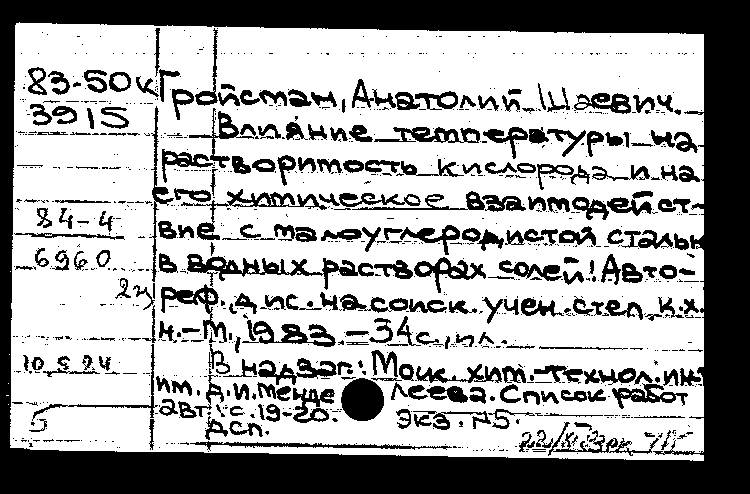 83-50к
3915
Гройсман, Анатолий Шаевич.
Влияние температуры на
растворимость кислорода и на
его химическое взаимодейст-
84-4
вие с малоуглеродистой сталью
6960
в водных растворах солей: Авто-
реф. дис. на соиск. учен. степ. к.х.
н. - М., 1983. - 34 с., ил.
10 5 24
В надзаг.: Моск. хим.-технол. ин-т
им. Д.И. Менде леева. Список работ
авт.: с. 19-20. Экз. №5.
5
ДСП.